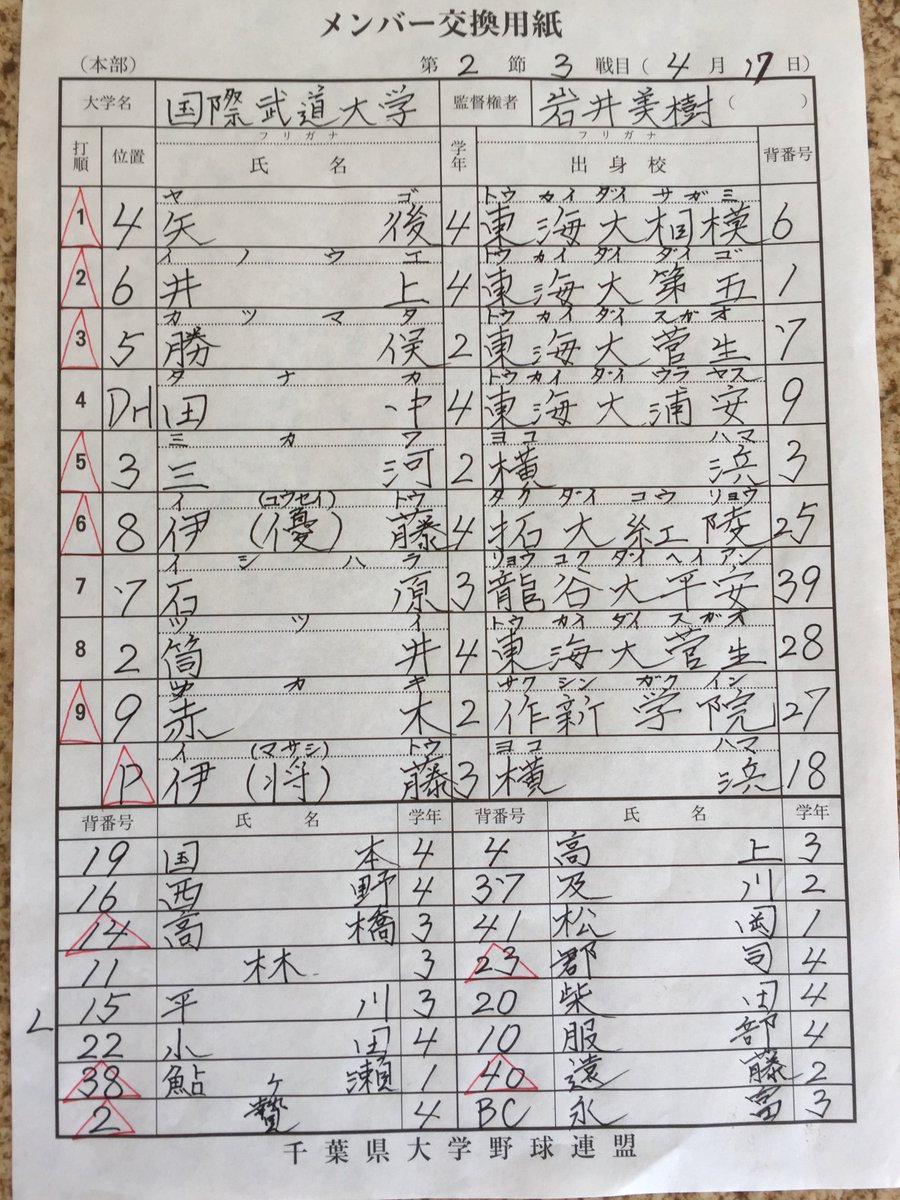 メンバー交換用紙
(本部) 第 2 節 3 戦目 ( 4 月 17 日)
大学名 国際武道大学 監督権者 岩井美樹 ( )
打順 位置 フリガナ 氏名 学年 フリガナ 出身校 背番号
ヤゴ トウカイダイサガミ
1 4 矢後 4 東海大相模 6
イノウエ トウカイダイダイゴ
2 6 井上 4 東海大第五 1
カツマタ トウカイダイスガオ
3 5 勝俣 2 東海大菅生 7
タナカ トウカイダイウラヤス
4 DH 田中 4 東海大浦安 9
ミカワ ヨコハマ
5 3 三河 2 横浜 3
イ(ユウセイ)トウ タクダイコウリョウ
6 8 伊(優)藤 4 拓大紅陵 25
イシハラ リョウコクダイヘイアン
7 7 石原 3 龍谷大平安 39
ツツイ トウカイダイスガオ
8 2 筒井 4 東海大菅生 28
カギ サクシンガクイン
9 9 赤木 2 作新学院 27
イ(マサシ)トウ ヨコハマ
P 伊(将)藤 3 横浜 18
背番号 氏名 学年 背番号 氏名 学年
19 国本 4 4 高上 3
16 西野 4 37 及川 2
14 高橋 3 41 松岡 1
11 林 3 23 郡司 4
L 15 平川 3 20 柴田 4
22 小田 4 10 服部 4
38 鮎ヶ瀬 1 40 遠藤 2
2 贄 4 BC 永富 3
千葉県大学野球連盟